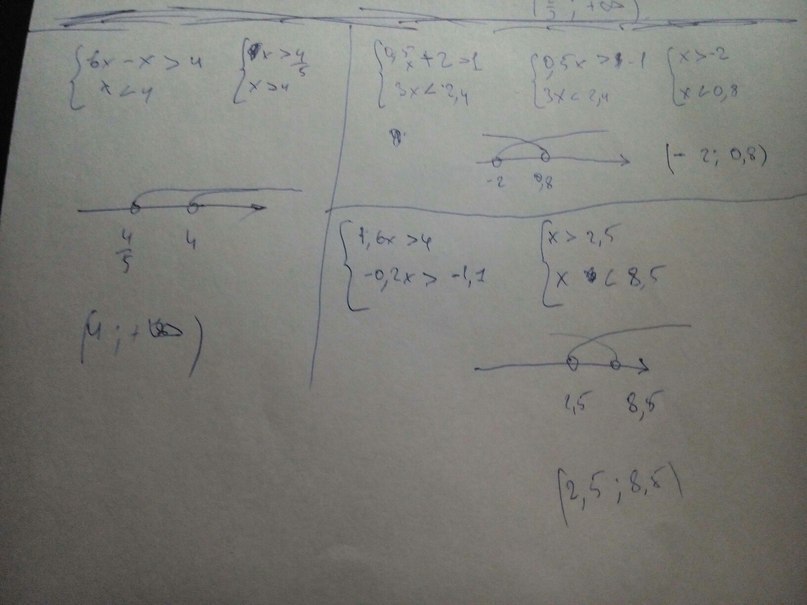 ; +∞)
6x - x > 4
x < 4
x > 4/5
x > 4
4/5 4
(4 ; +∞)
0,5x + 2 > 1
3x < 2,4
0,5x > -1
3x < 2,4
x > -2
x < 0,8
-2 0,8
(- 2 ; 0,8)
1,6x > 4
-0,2x > -1,1
x > 2,5
x < 8,5
2,5 8,5
(2,5 ; 8,5)